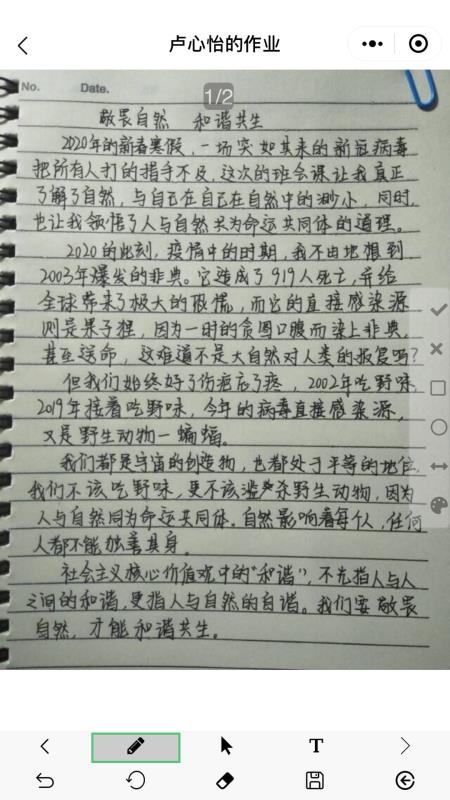 卢心怡的作业
No.
Date.
1/2
敬畏自然 和谐共生
2020年的新春寒假，一场突如其来的新冠病毒
把所有人打的措手不及，这次的班会课让我真正
了解了自然，与自己在自己在自然中的渺小，同时，
也让我领悟了人与自然共为命运共同体的道理。
2020的此刻，疫情中的时期，我不由地想到
2003年爆发的非典。它造成了919人死亡，并给
全球带来了极大的恐慌，而它的直接感染源
则是果子狸，因为一时的贪图口腹而染上非典，
甚至送命，这难道不是大自然对人类的报复吗？
但我们始终好了伤疤忘了疼，2002年吃野味，
2019年接着吃野味，今年的病毒直接感染源，
又是野生动物－蝙蝠。
我们都是宇宙的创造物，也都处于平等的地位，
我们不该吃野味，更不该滥杀野生动物，因为
人与自然同为命运共同体。自然影响着每个人，任何
人都不能独善其身。
社会主义核心价值观中的“和谐”，不光指人与人
之间的和谐，更指人与自然的自谐。我们要敬畏
自然，才能和谐共生。
T